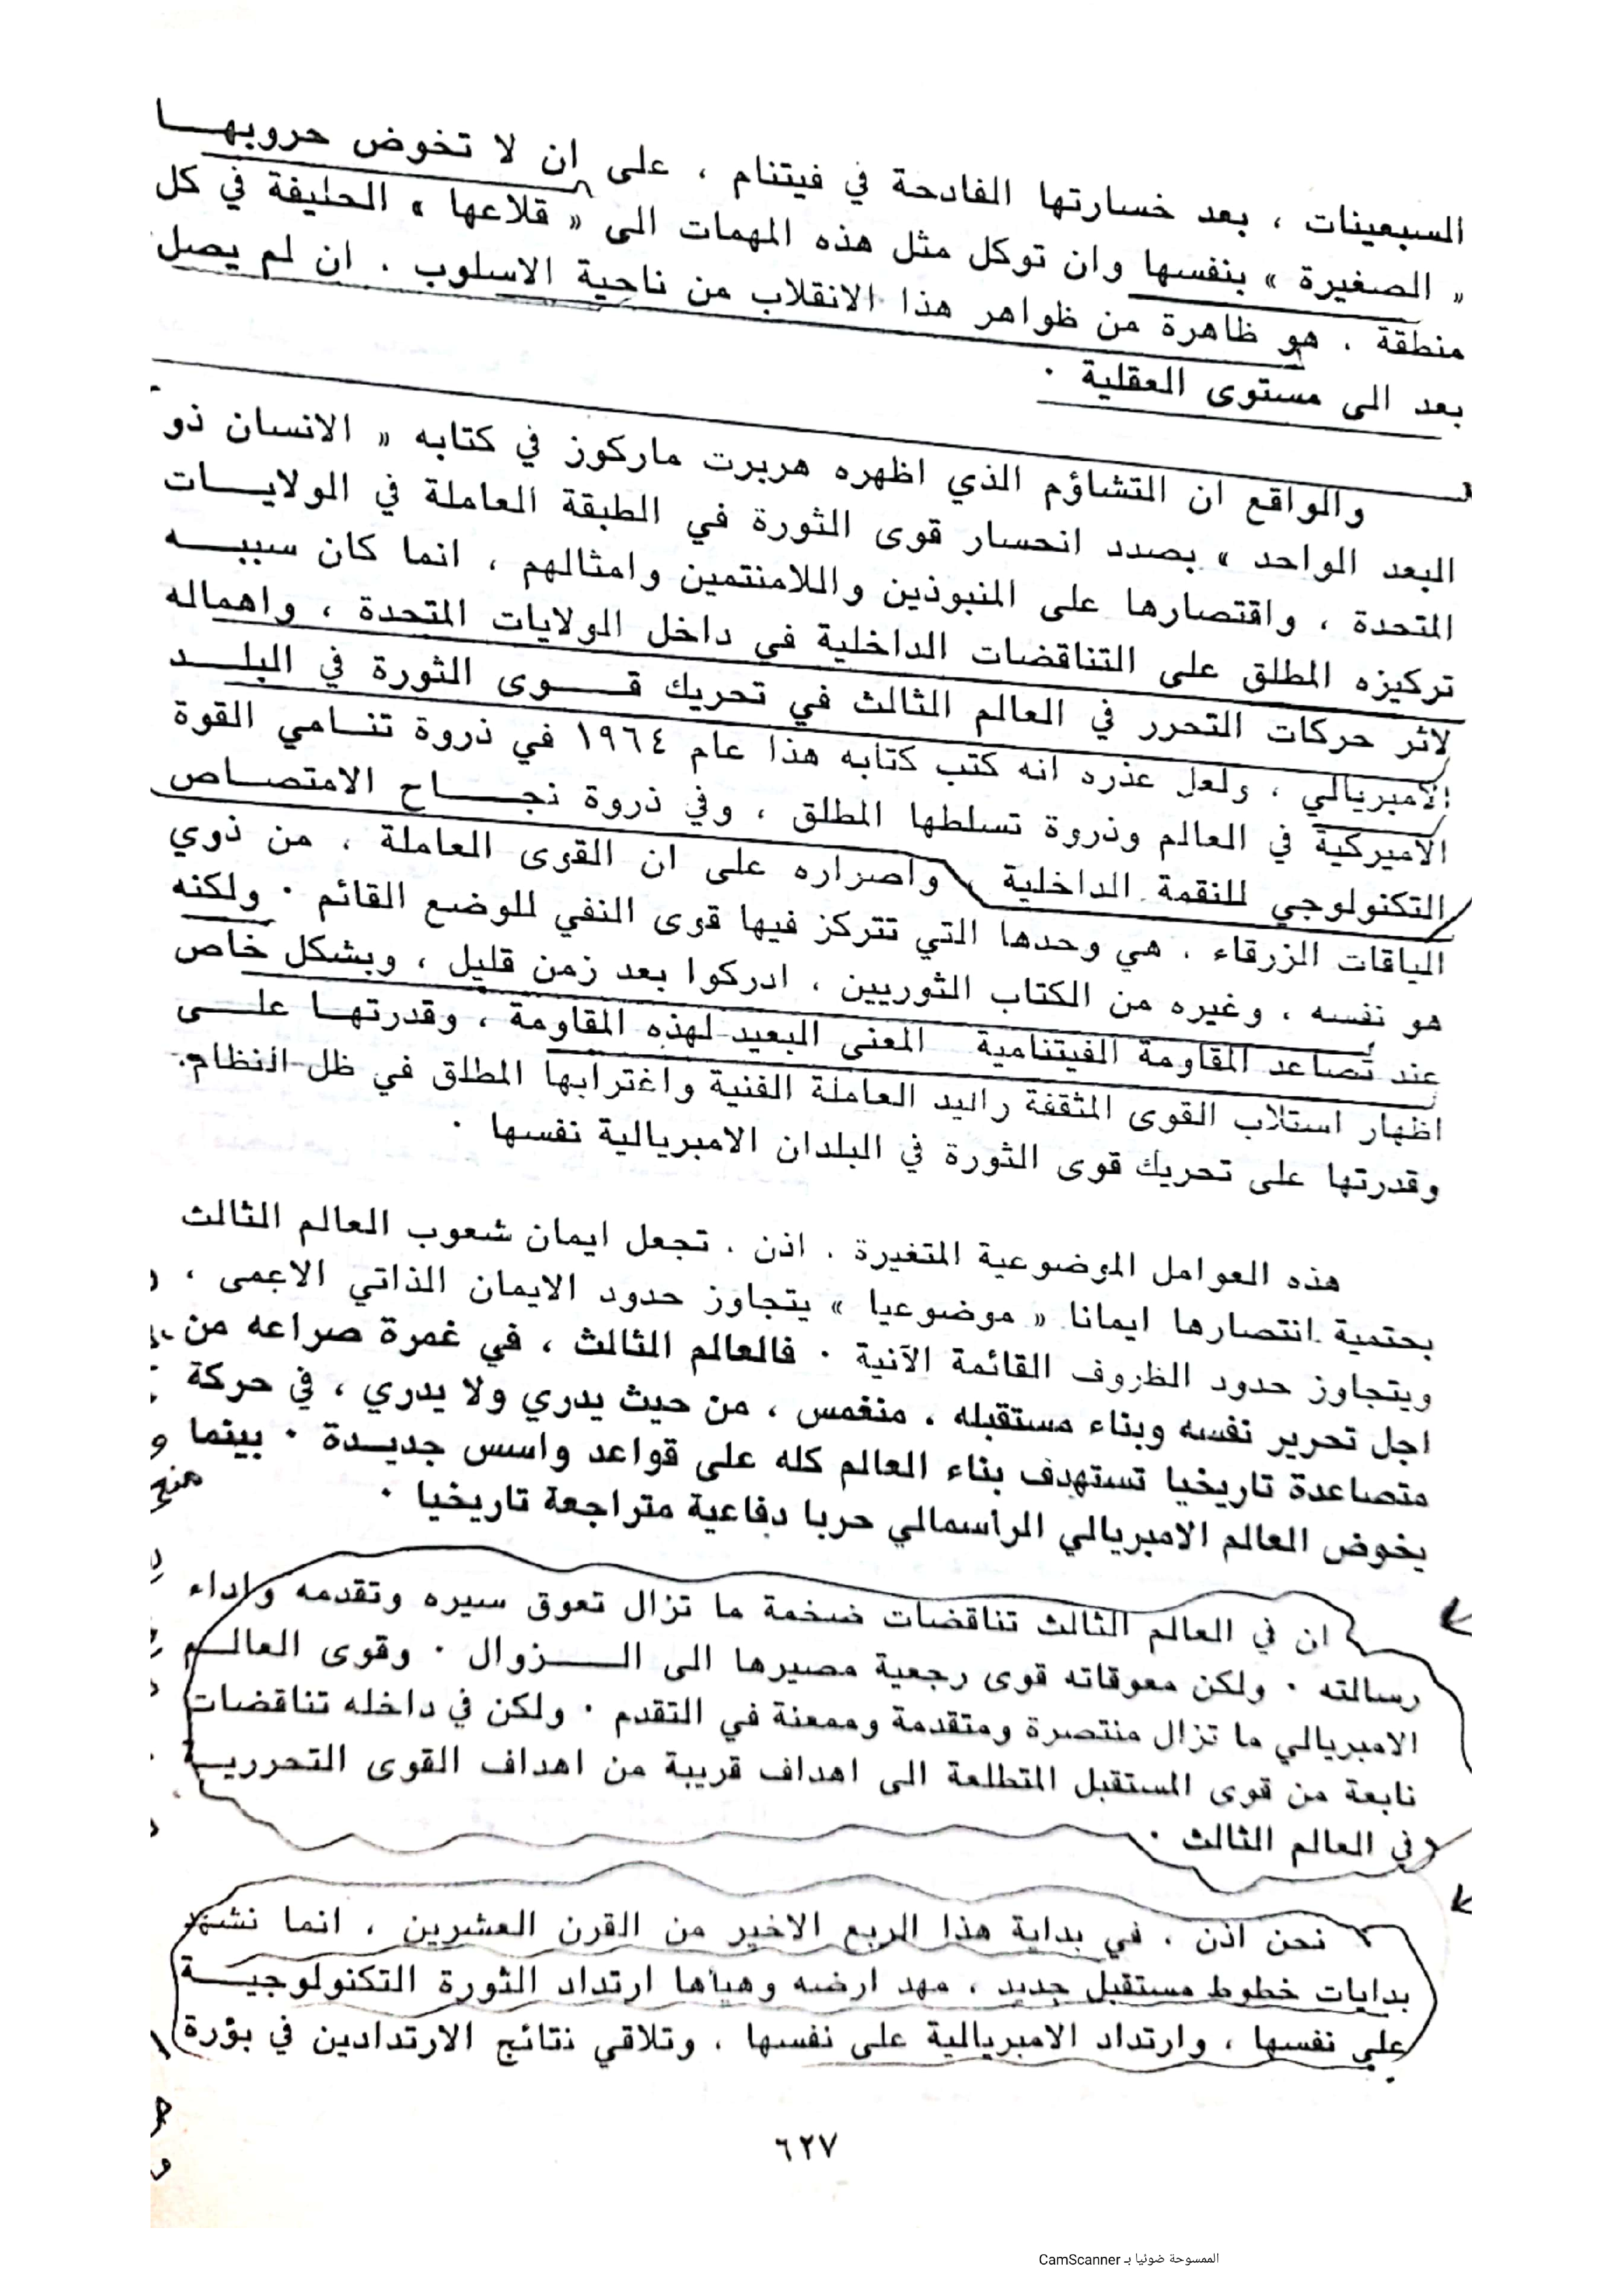 السبعينات ، بعد خسارتها الفادحة في فيتنام ، على ان لا تخوض حروبهـــا
« الصغيرة » بنفسها وان توكل مثل هذه المهمات الى « قلاعها » الحليفة في كل
منطقة ، هو ظاهرة من ظواهر هذا الانقلاب من ناحية الاسلوب ، ان لم يصل
بعد الى مستوى العقلية ·
والواقع ان التشاؤم الذي اظهره هربرت ماركوز في كتابه « الانسان ذو
البعد الواحد » بصدد انحسار قوى الثورة في الطبقة العاملة في الولايـــات
المتحدة ، واقتصارها على المنبوذين واللامنتمين وامثالهم ، انما كان سببـــه
تركيزه المطلق على التناقضات الداخلية في داخل الولايات المتحدة ، واهماله
لاثر حركات التحرر في العالم الثالث في تحريك قـــوى الثورة في البلـــد
الامبريالي ، ولعل عذره انه كتب كتابه هذا عام ١٩٦٤ في ذروة تنـــامي القوة
الاميركية في العالم وذروة تسلطها المطلق ، وفي ذروة نجـــاح الامتصـــاص
التكنولوجي للنقمة الداخلية ، واصراره على ان القوى العاملة ، من ذوي
الياقات الزرقاء ، هي وحدها التي تتركز فيها قوى النفي للوضع القائم · ولكنه
هو نفسه ، وغيره من الكتاب الثوريين ، ادركوا بعد زمن قليل ، وبشكل خاص
عند تصاعد المقاومة الفيتنامية المعنى البعيد لهذه المقاومة ، وقدرتهـا علـــى
اظهار استلاب القوى المثقفة واليد العاملة الفنية واغترابها المطلق في ظل النظام.
وقدرتها على تحريك قوى الثورة في البلدان الامبريالية نفسها ·
هذه العوامل الموضوعية المتغيرة ، اذن ، تجعل ايمان شعوب العالم الثالث
بحتمية انتصارها ايمانا « موضوعيا » يتجاوز حدود الايمان الذاتي الاعمى ،
ويتجاوز حدود الظروف القائمة الآنية · فالعالم الثالث ، في غمرة صراعه من
اجل تحرير نفسه وبناء مستقبله ، منغمس ، من حيث يدري ولا يدري ، في حركة
متصاعدة تاريخيا تستهدف بناء العالم كله على قواعد واسس جديـــدة · بينما
يخوض العالم الامبريالي الرأسمالي حربا دفاعية متراجعة تاريخيا ·
ان في العالم الثالث تناقضات ضخمة ما تزال تعوق سيره وتقدمه واداء
رسالته · ولكن معوقاته قوى رجعية مصيرها الى الـــزوال · وقوى العالـــم
الامبريالي ما تزال منتصرة ومتقدمة وممعنة في التقدم · ولكن في داخله تناقضات
نابعة من قوى المستقبل المتطلعة الى اهداف قريبة من اهداف القوى التحرريـــة
في العالم الثالث ·
نحن اذن ، في بداية هذا الربع الاخير من القرن العشرين ، انما نشهد
بدايات خطوط مستقبل جديد ، مهد ارضه وهيأها ارتداد الثورة التكنولوجيـــة
على نفسها ، وارتداد الامبريالية على نفسها ، وتلاقي نتائج الارتدادين في بؤرة
٦٢٧
الممسوحة ضوئيا بـ CamScanner